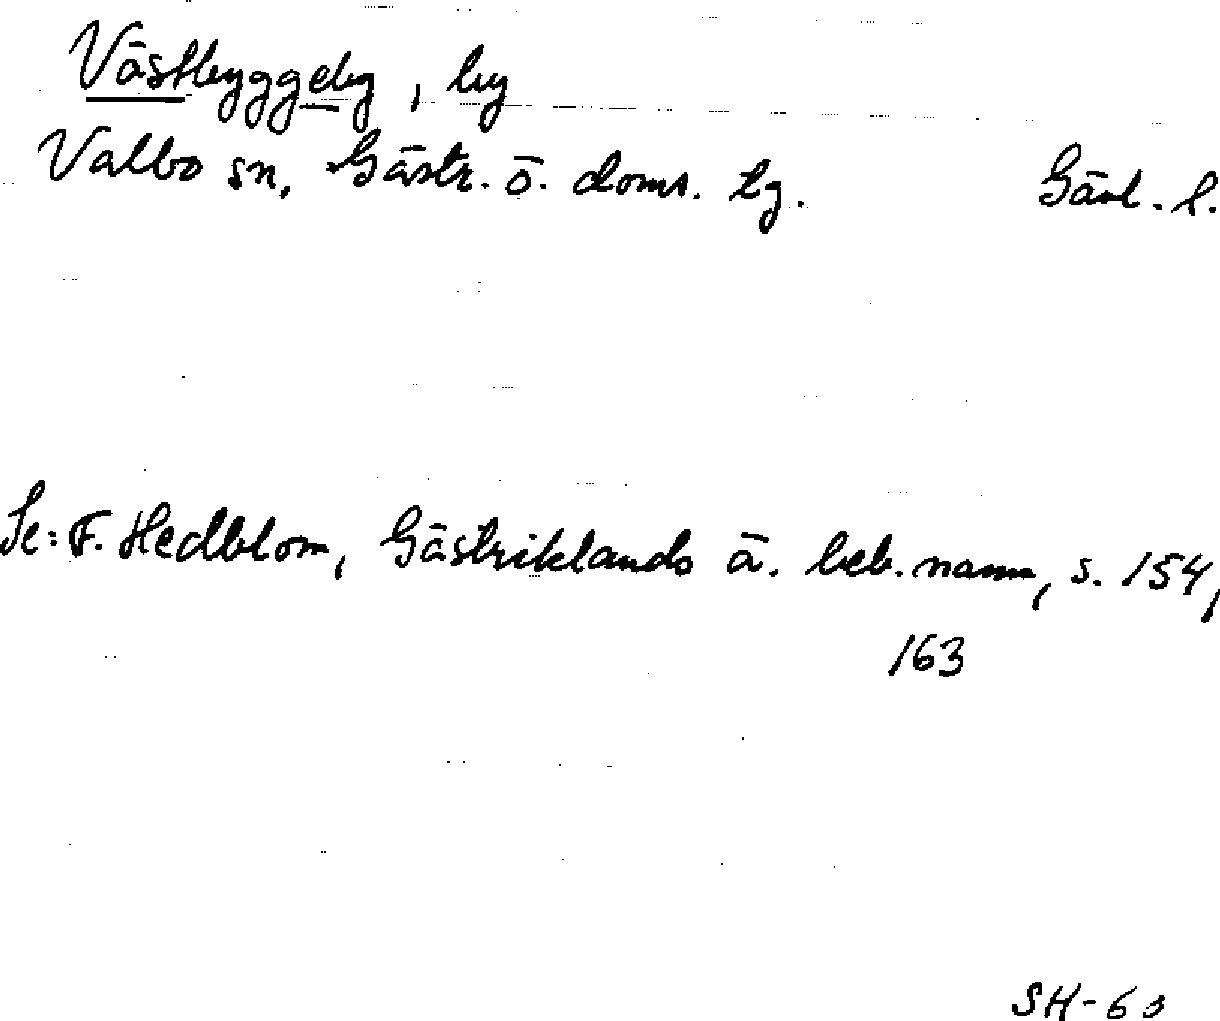 Västbyggeby, by
Valbo sn, Gästr. ö. doms. tg. Gävl. l.
Se: F. Hedblom, Gästriklands ä. beb.namn, s. 154,
163
SH-63